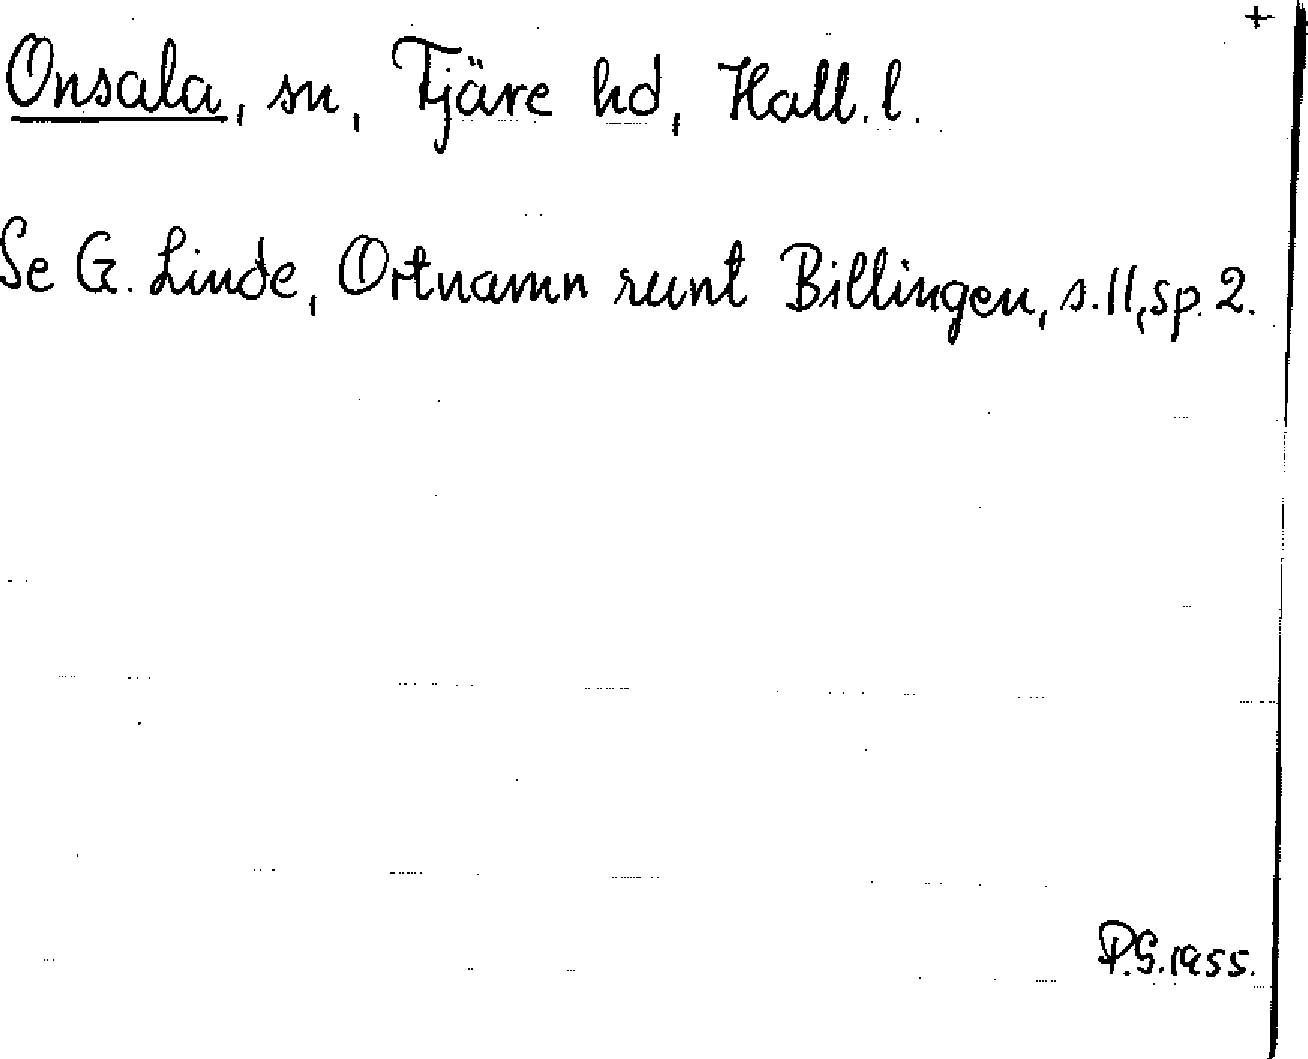 +
Onsala, sn, Tjäre hd, Hall. l.
Se G. Linde, Ortnamn runt Billingen, s. 11, sp. 2.
P.G. 1955.